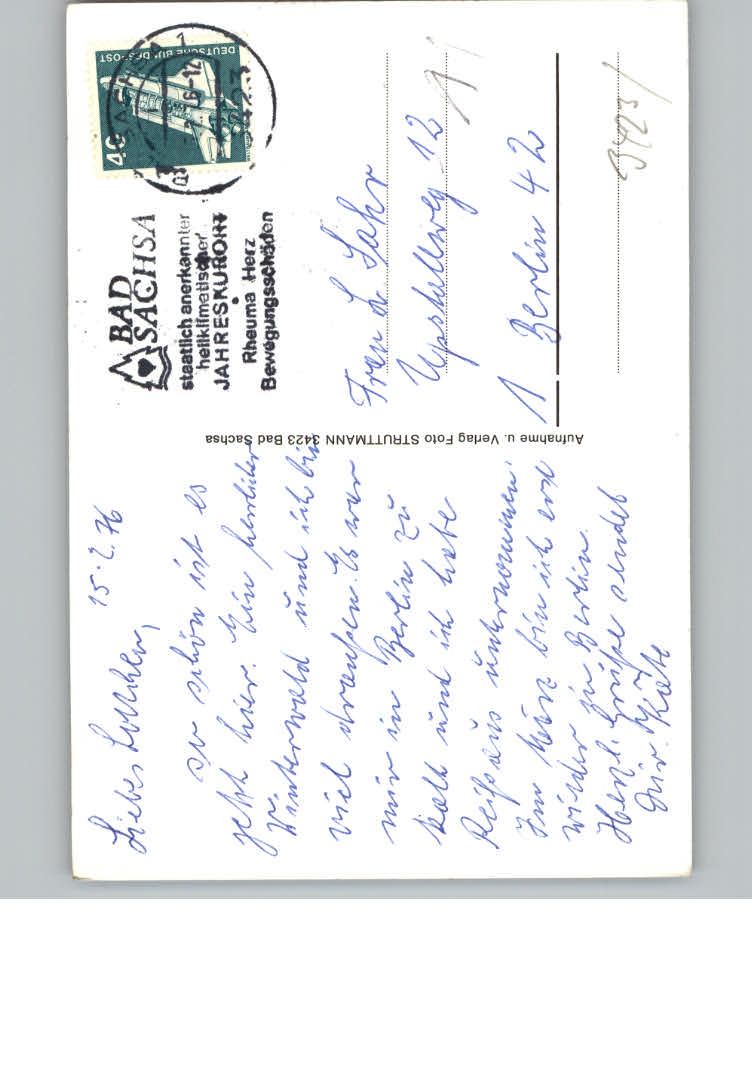 15.2.76
Liebes Lottchen,
so schön ist es
jetzt hier. Ein herrlicher
Winterwald und ich bin
viel draußen. Es war
mir in Berlin zu
kalt und ich habe
Reißaus unternommen.
Im März bin ich erst
wieder in Berlin.
Herzl. Grüße sendet
Dir Käte
Aufnahme u. Verlag Foto STRUTTMANN 3423 Bad Sachsa
DEUTSCHE BUNDESPOST
40
BAD
SACHSA
staatlich anerkannter
heilklimatischer
JAHRESKURORT
Rheuma Herz
Bewegungsschäden
Frau L. Lahr
Upstallweg 12
1 Berlin 42
3423/